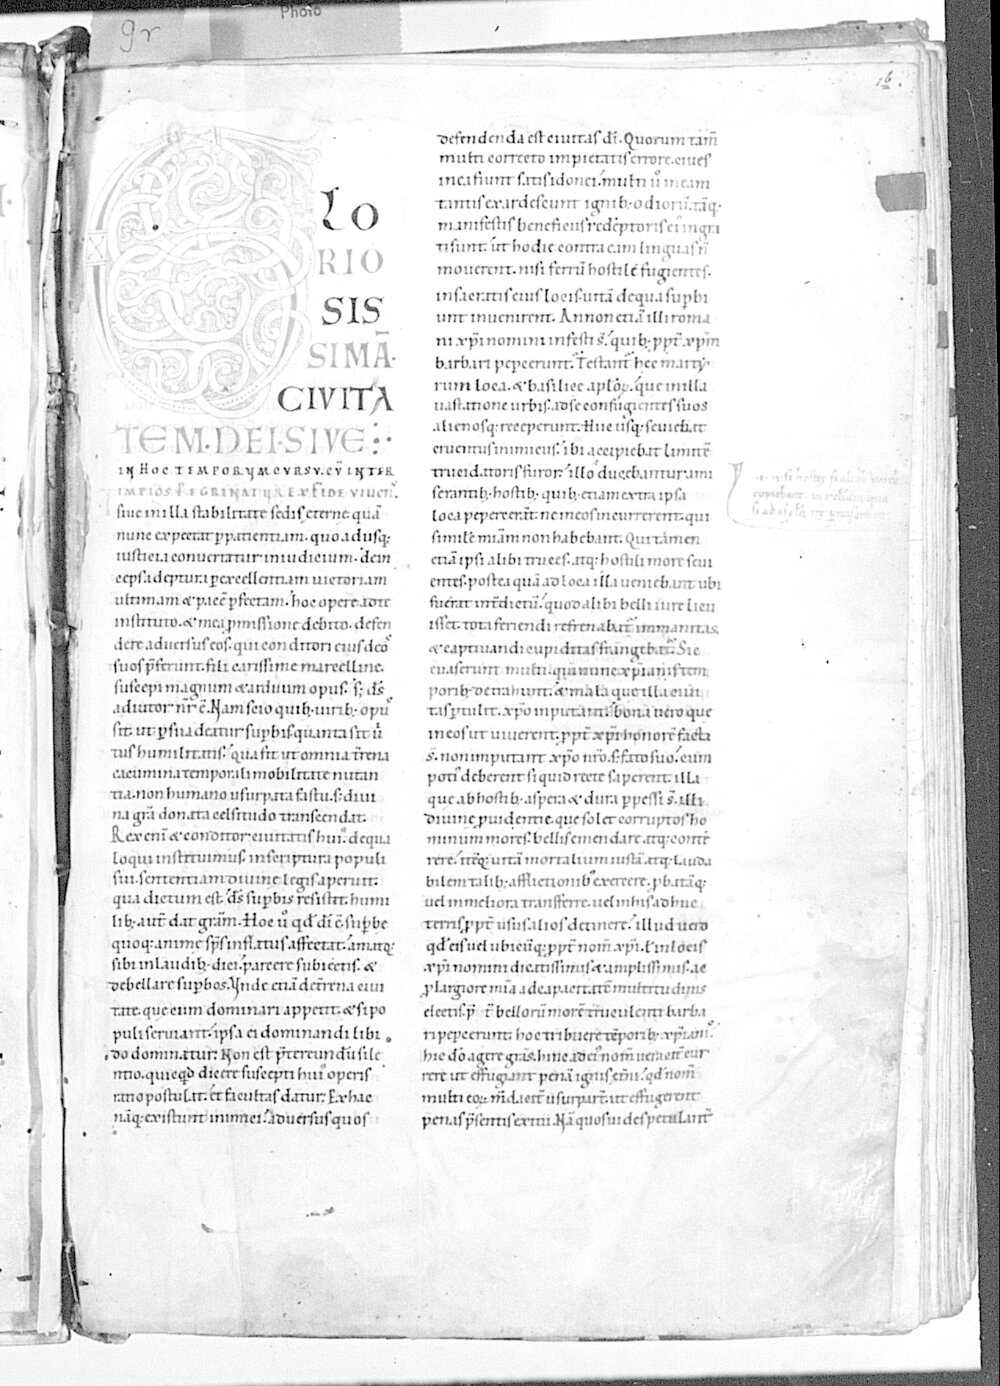 Photo
9r
16.
G LO
RIO
SIS
SIMĀ·
CIVITA
TEM·DEI·SIVE
IN HOC TEMPORUM CURSU·CŪ INTER
IMPIOS PEREGRINATUR EX FIDE VIVENS·
siue in illa stabilitate sedis eternę quā
nunc expectat p patientiam· quo adusq;
iusticia conuertatur in iudicium· dein
ceps adeptura p excellentiam uictoriam
ultimam & pacē pfectam· hoc opere a dte
instituto· & mea pmissione debito· defen
dere aduersus eos· qui conditori eius deos
suos pferunt· fili carissime marcelline·
suscepi magnum & arduum opus· s; ds
adiutor nr ē· Nam scio quib; uirib; opus
sit· ut psuadeatur supbis quanta sit uir
tus humilitatis· qua fit ut omnia trena
cacumina temporali mobilitate nutan
tia· non humano usurpata fastu· s; diui
na grā donata celsitudo transcendat·
Rex eni & conditor ciuitatis hui' de qua
loqui instituimus· in scriptura populi
sui· sententiam diuinę legis aperuit·
qua dictum est· ds supbis resistit· humi
lib; aut dat grām· Hoc u qd di ē· supbę
quoq; animę sps inflatus affectat· amatq;
sibi in laudib; dici· parcere subiectis· &
debellare supbos· Vnde etiā de trena ciui
tate· quę cum dominari appetit· & si po
puli seruiant· ipsa ei dominandi libi
do dominatur· Non est ptereundū sile
ntio· quicqd dicere suscepti hui' operis
ratio postulat· et facultas datur· Ex hac
nāq; existunt inimici· aduersus quos
defendenda est ciuitas di· Quorum tam
multi correcto impietatis errore· ciues
in ea fiunt satis idonei· multi u in eam
tantis exardescunt ignib; odiorū· tāq;
manifestis beneficiis redeptoris ei' ingra
ti sunt· ut hodie contra eam linguas n
mouerent· nisi ferrū hostile fugientes·
in sacratis eius locis· uitā de qua supbi
unt inuenirent· An non etiā illi roma
ni xpi nomini infesti s· quib; ppt xpm
barbari pepercunt· Testant hęc marty
rum loca· & basilicę aplor· quę in illa
uastatione urbis· ad se confugientes suos
alienosq; receperunt· Huc usq; seuiebat
cruentus inimicus· ibi accipiebat limitē
trucidatoris furor· illo ducebantur a mi
serantib; hostib; quib; etiam extra ipsa
loca pepercerāt· ne in eos incurrerent· qui
similē miam non habebant· Qui tamen
etiā ipsi alibi truces· atq; hostili more seui
entes· postea quā ad loca illa ueniebant ubi
fuerat intdictū· quod alibi belli iure licu
isset· tota feriendi refrenabat immanitas
& captiuandi cupiditas frangebat· Sic
euaserunt multi· qui nunc xpianis tem
porib; detrahunt· & mala quę illa ciui
tas ptulit· xpo imputant· bona uero quę
in eos ut uiuerent· ppt xpi honorē facta
s· non imputant xpo nro· s; fato suo· cum
poti' deberent si quid recte saperent· illa
quę ab hostib; aspera & dura ppessi s· illi
diuinę puidentię· quę solet corruptos ho
minum mores· bellis emendare atq; conte
rere· itēq; uitā mortalium iustā· atq; lauda
bilem talib; afflictionib' exercere· pbatāq;
uel in meliora transferre· uel in his adhuc
terris ppt usus alios detinere· illud uero
qd eis uel ubicūq; ppt nom xpi· l in locis
xpi nomini dicatissimis & amplissimis· ac
p largiore mia ad capacitatē multitudinis
electis p t bellorū morē truculenti barba
ri pepercunt· hoc tribuere tēporib; xpianis·
hinc dō agere gras· hinc ad ei' nom ueraciter cur
rere ut effugiant penā ignis et̄ni· qd nom
multi eor mdacit usurpart· ut effugerent
penas psentis exitii· Nā quos uides petulant